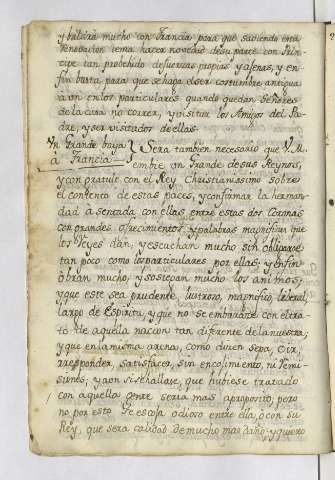 y baldrá mucho con Francia para que saviendo esta
tema hacer novedad de su parte con Prin-
cipe tan probehido de fuerzas propias y ajenas, y en
fin basta para que se haga el ser costumbre antigua
á un en los particulares quando quedan Señores
de la casa no correr, y visitar los Amigos del Pa-
dre, y ser visitados de ellos.
Un Grande baya
á Francia
Sera tambien necesario que V.M.
embie un Grande de sus Reynos,
y congratule con el Rey Christianissimo sobre
el contento de estas paces, y confirmar la herman-
dad asentada con ellas entre estas dos Coronas
con grandes ofrecimientos y palabras magnificas que
los Reyes dan, y escuchan mucho sin obligarse
tan poco como los particulares por ellas; y en fin
obran mucho, y sosiegan mucho los animos;
y que este sea prudente, lustrozo, magnifico, liberal,
largo de Espiritu, y que no se embarace con el tra-
to de aquella nacion tan diferente de la nuestra;
y que en la misma arena, como dicen sepa, Oir,
rresponder, satisfacer, sin encojimiento, ni
y aon si se hallase, que hubiese tratado
con aquella gente seria mas aproposito, pero
no por esto se escoja odioso entre ella, ó con su
Rey, que sera calidad de mucho mas daño: y quiero